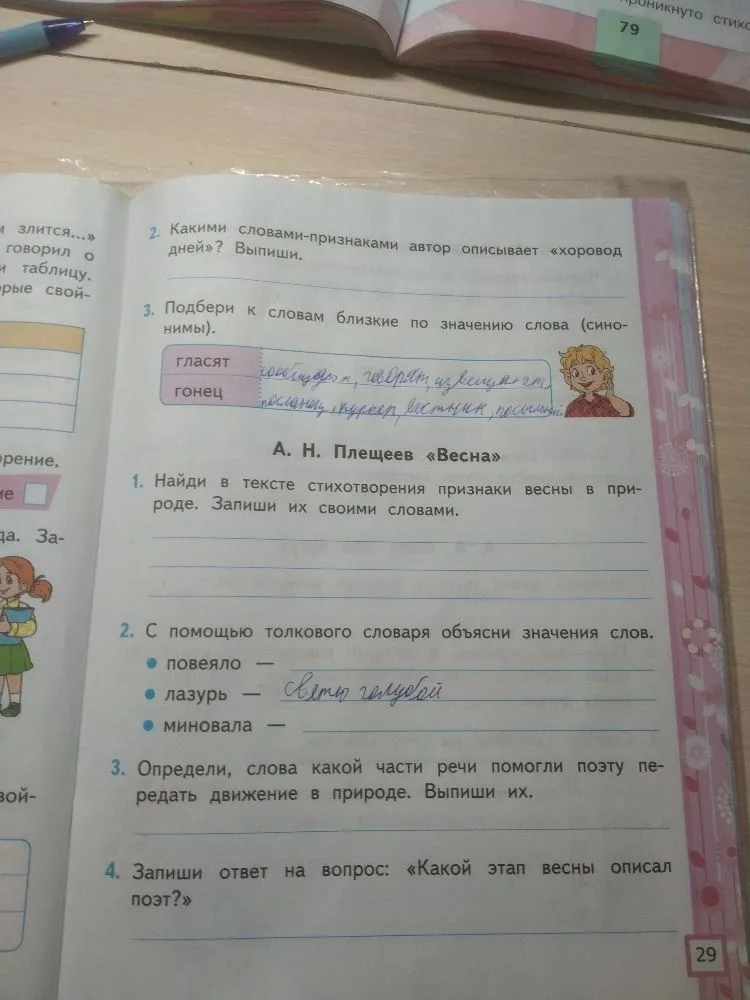 проникнуто стихо
79
м злится...»
говорил о
и таблицу.
орые свой-
2. Какими словами-признаками автор описывает «хоровод
дней»? Выпиши.
3. Подбери к словам близкие по значению слова (сино-
нимы).
гласят сообщают, говорят, извещают,
гонец посланец, курьер, вестник, посыльный
орение.
ие
да. За-
А. Н. Плещеев «Весна»
1. Найди в тексте стихотворения признаки весны в при-
роде. Запиши их своими словами.
2. С помощью толкового словаря объясни значения слов.
• повеяло —
• лазурь — светло голубой
• миновала —
3. Определи, слова какой части речи помогли поэту пе-
редать движение в природе. Выпиши их.
вой-
4. Запиши ответ на вопрос: «Какой этап весны описал
поэт?»
29